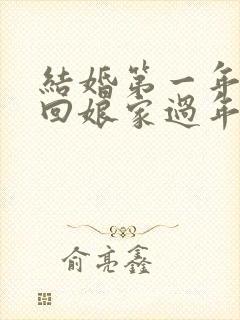 結婚第一年
回娘家過年
俞亮鑫